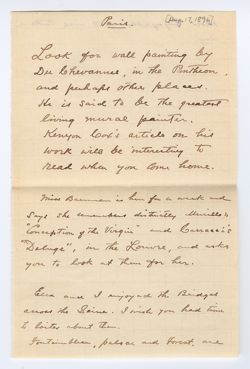 Paris.
[Aug. 17, 1896]
Look for wall painting by
De Chevannes, in the Pantheon,
and perhaps other places.
He is said to be the greatest
living mural painter.
Kenyon Cox's article on his
work will be interesting to
read when you come home.
Miss is here for a week and
says she remembers distinctly Murillo's
"Conception of the Virgin" and Carracci's
"Deluge", in the Louvre, and asks
you to look at them for her.
and I enjoyed the Bridges
across the Seine. I wish you had time
to loiter about them.
Fontainbleau, palace and forest, are